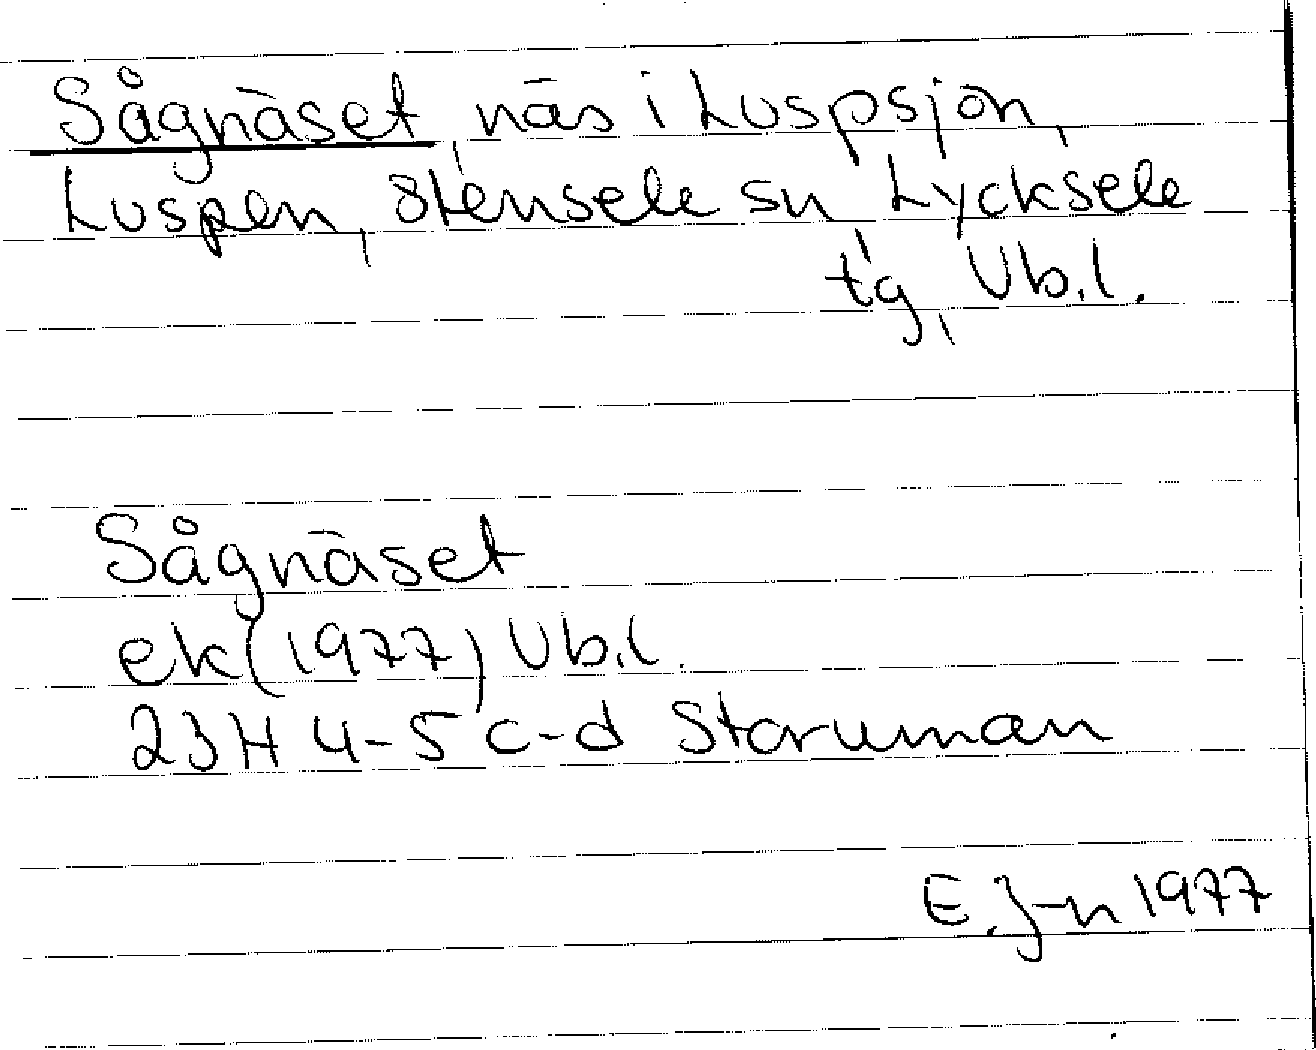 Sågnäset, näs i Luspsjön,
Luspen, Stensele sn, Lycksele
tg, Vb.l.
Sågnäset
ek (1977) Vb.l.
23H 4-5 c-d Storuman
E. J-n 1977